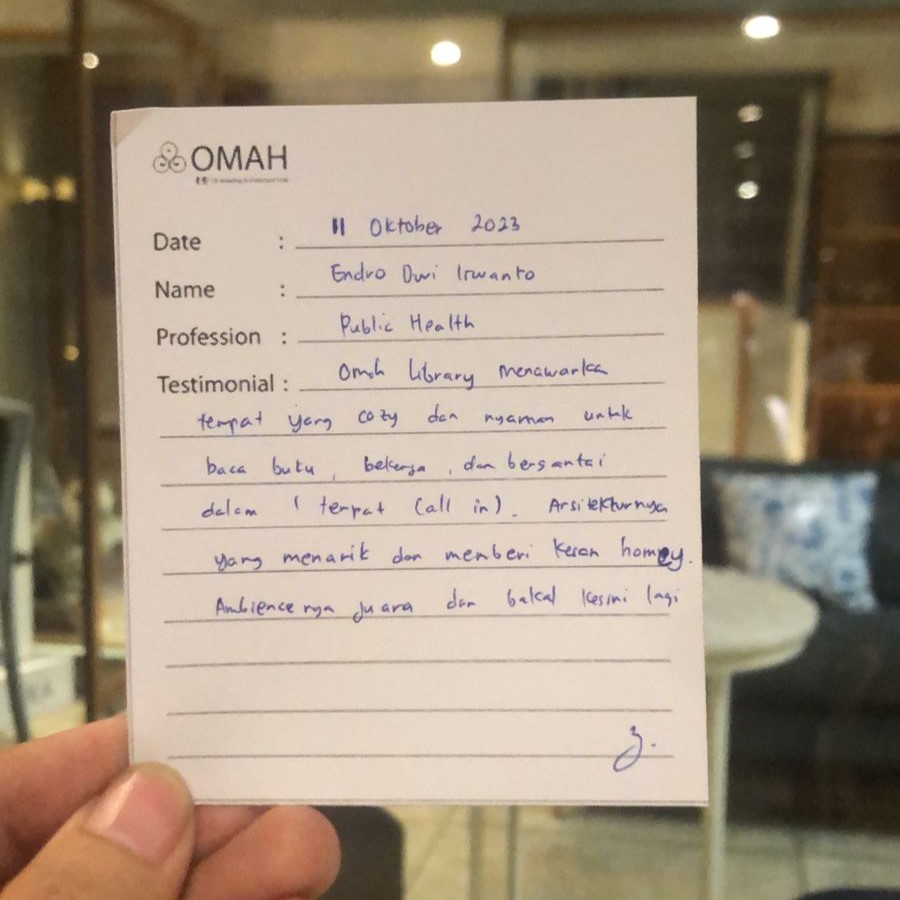 OMAH
Date : 11 Oktober 2023
Name : Endro Dwi Irwanto
Profession : Public Health
Testimonial : Omah Library menawarka
tempat yang cozy dan nyaman untuk
baca buku, bekerja, dan bersantai
dalam 1 tempat (all in). Arsitekturnya
yang menarik dan memberi kesan homey.
Ambiencenya juara dan bakal kesini lagi